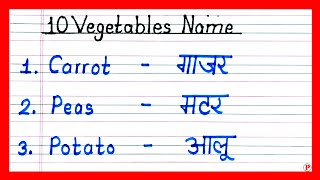 10 Vegetables Name
1. Carrot - गाजर
2. Peas - मटर
3. Potato - आलू